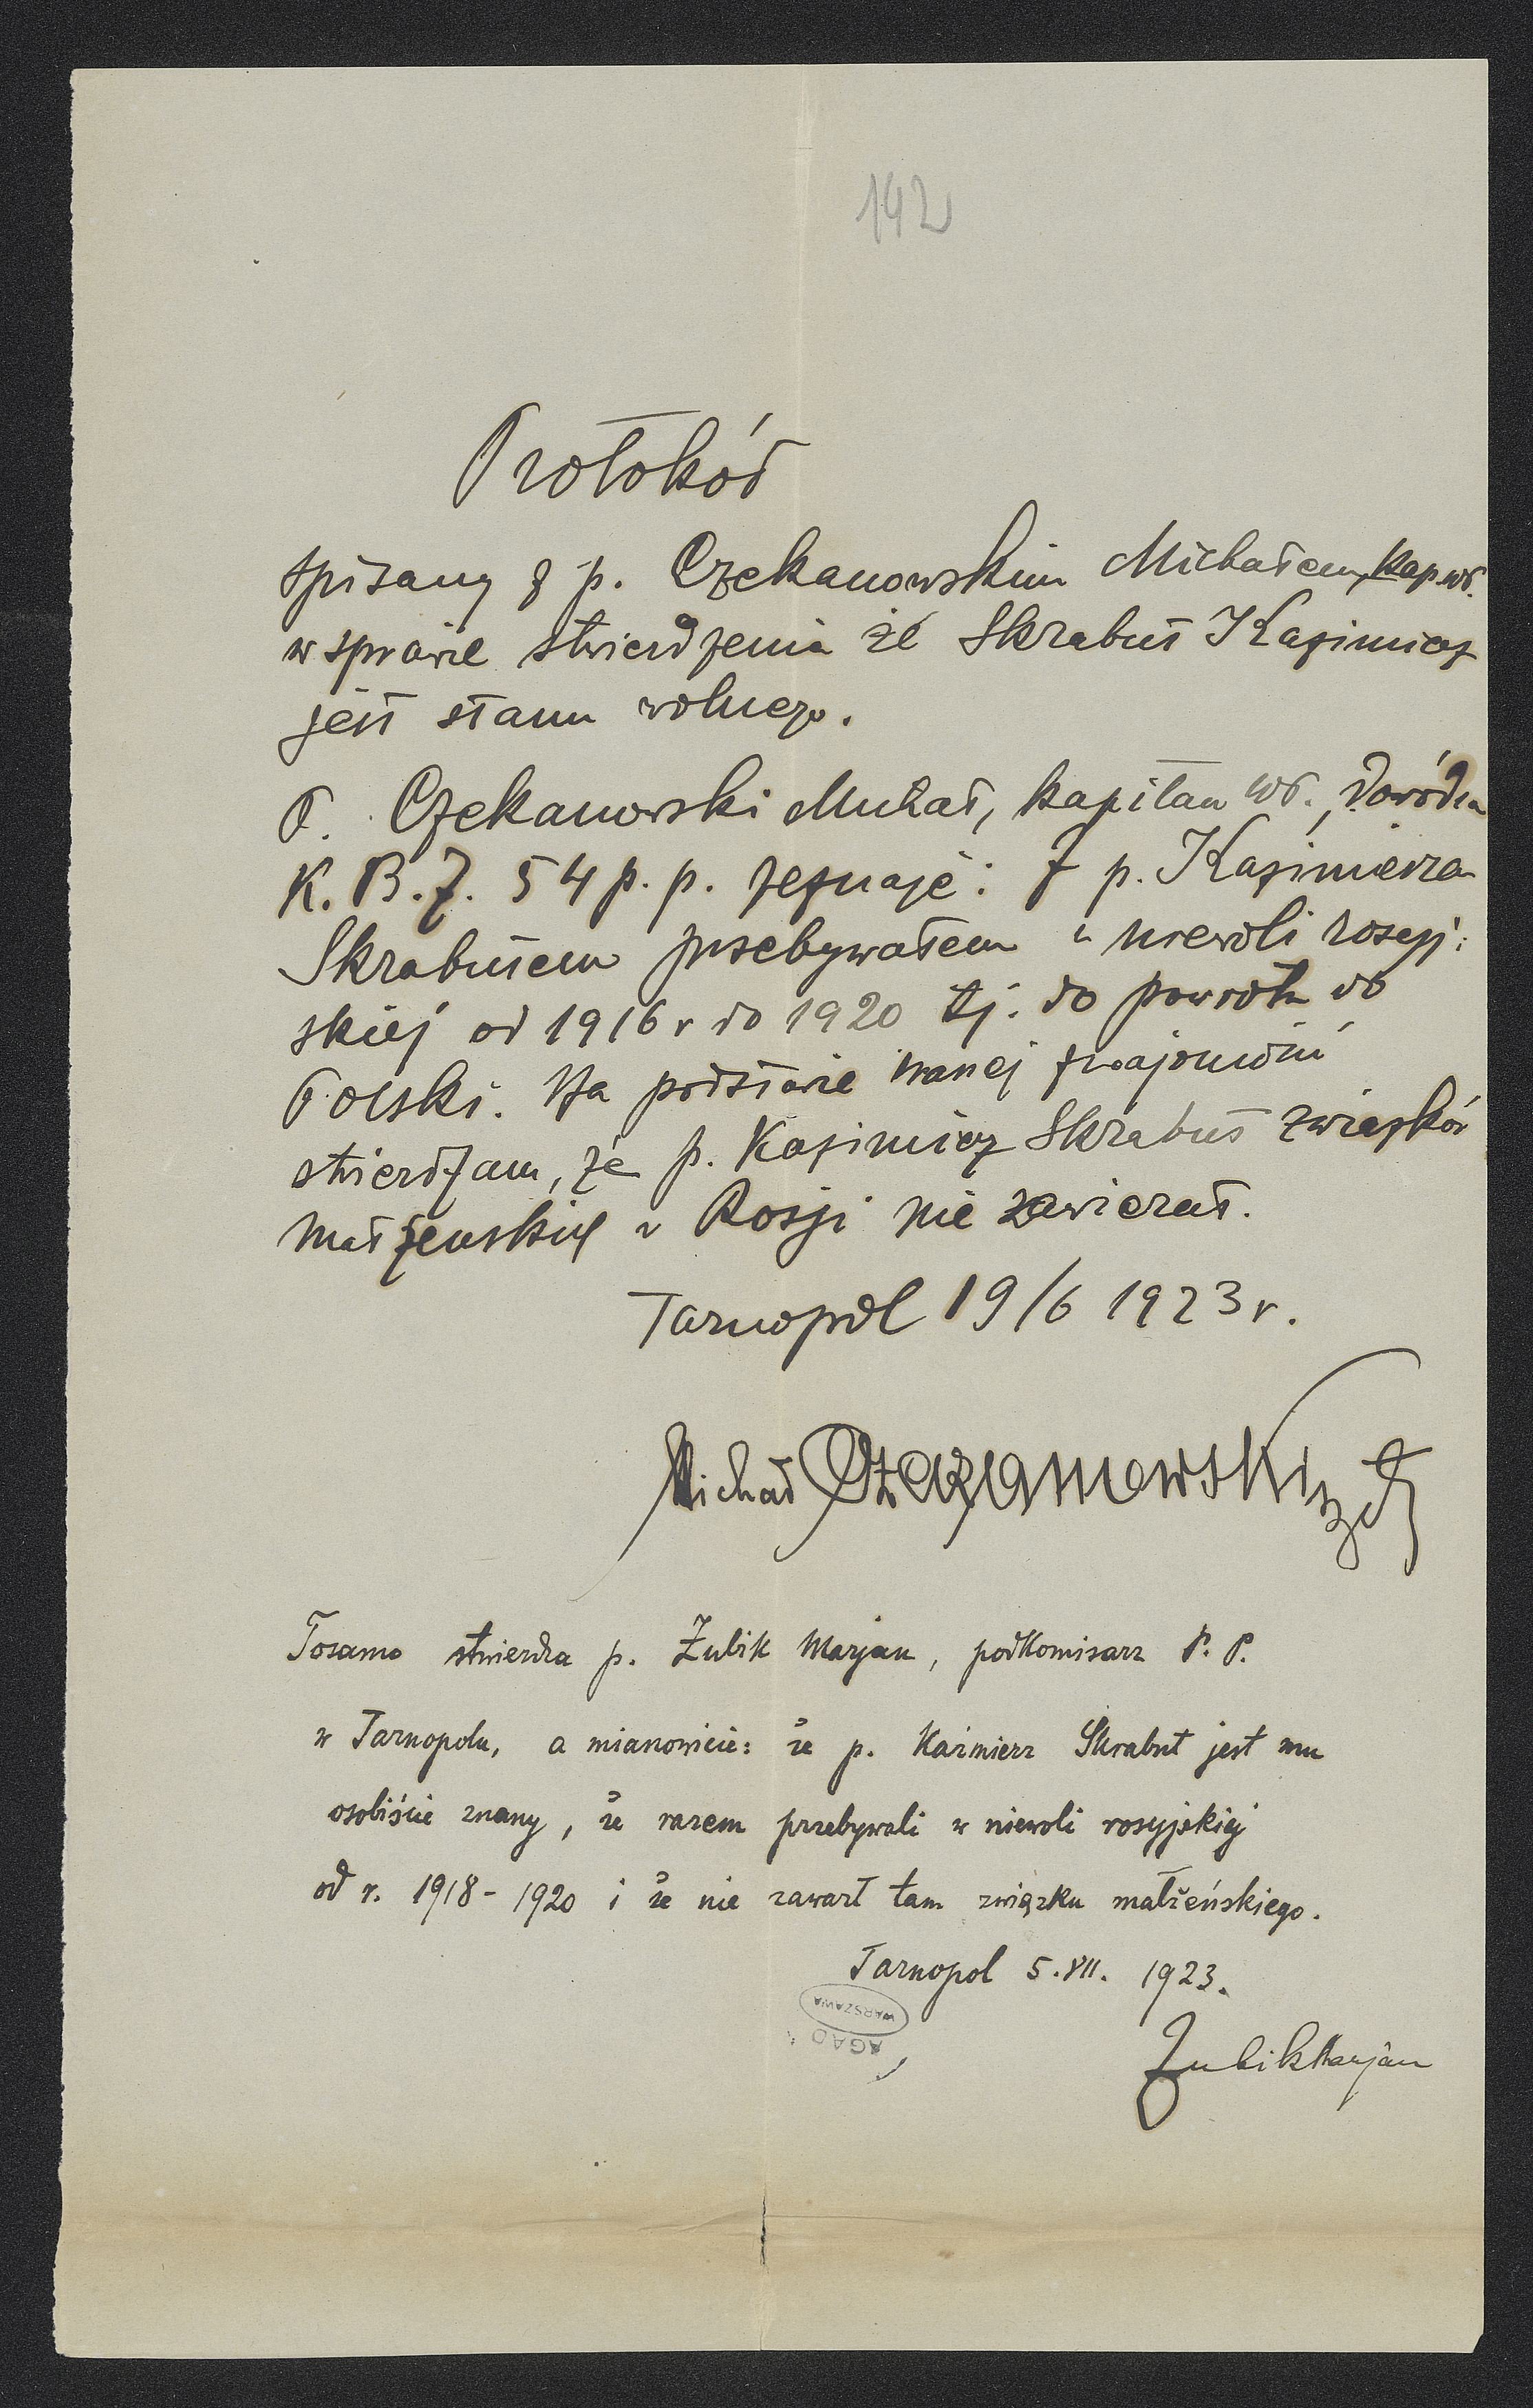 142
Protokół
spisany z p. Czekanowskim Michałem, kap. w s.
w sprawie stwierdzenia że Skrabut Kazimierz
jest stanu wolnego.
P. Czekanowski Michał, kapitan, Dowódca
K. B. Z. 54 p. p. zeznaje: Z p. Kazimierzem
Skrabutem przebywałem w niewoli rosyj-
skiej od 1916 r do 1920 tj. do powrotu do
Polski. Na podstawie znajomości
stwierdzam, że p. Kazimierz Skrabut związków
małżeńskich w Rosji nie zawierał.
Tarnopol 19/6 1923 r.
Michał
Tosamo stwierdza p. Zubik Marjan, podkomisarz P. P.
w Tarnopolu, a mianowicie: że p. Kaźmierz Skrabut jest mu
osobiście znany, że razem przebywali w niewoli rosyjskiej
od r. 1918 - 1920 i że nie zawarł tam związku małżeńskiego.
Tarnopol 5. VII. 1923.
WARSZAWA
AGAD
Zubik Marjan